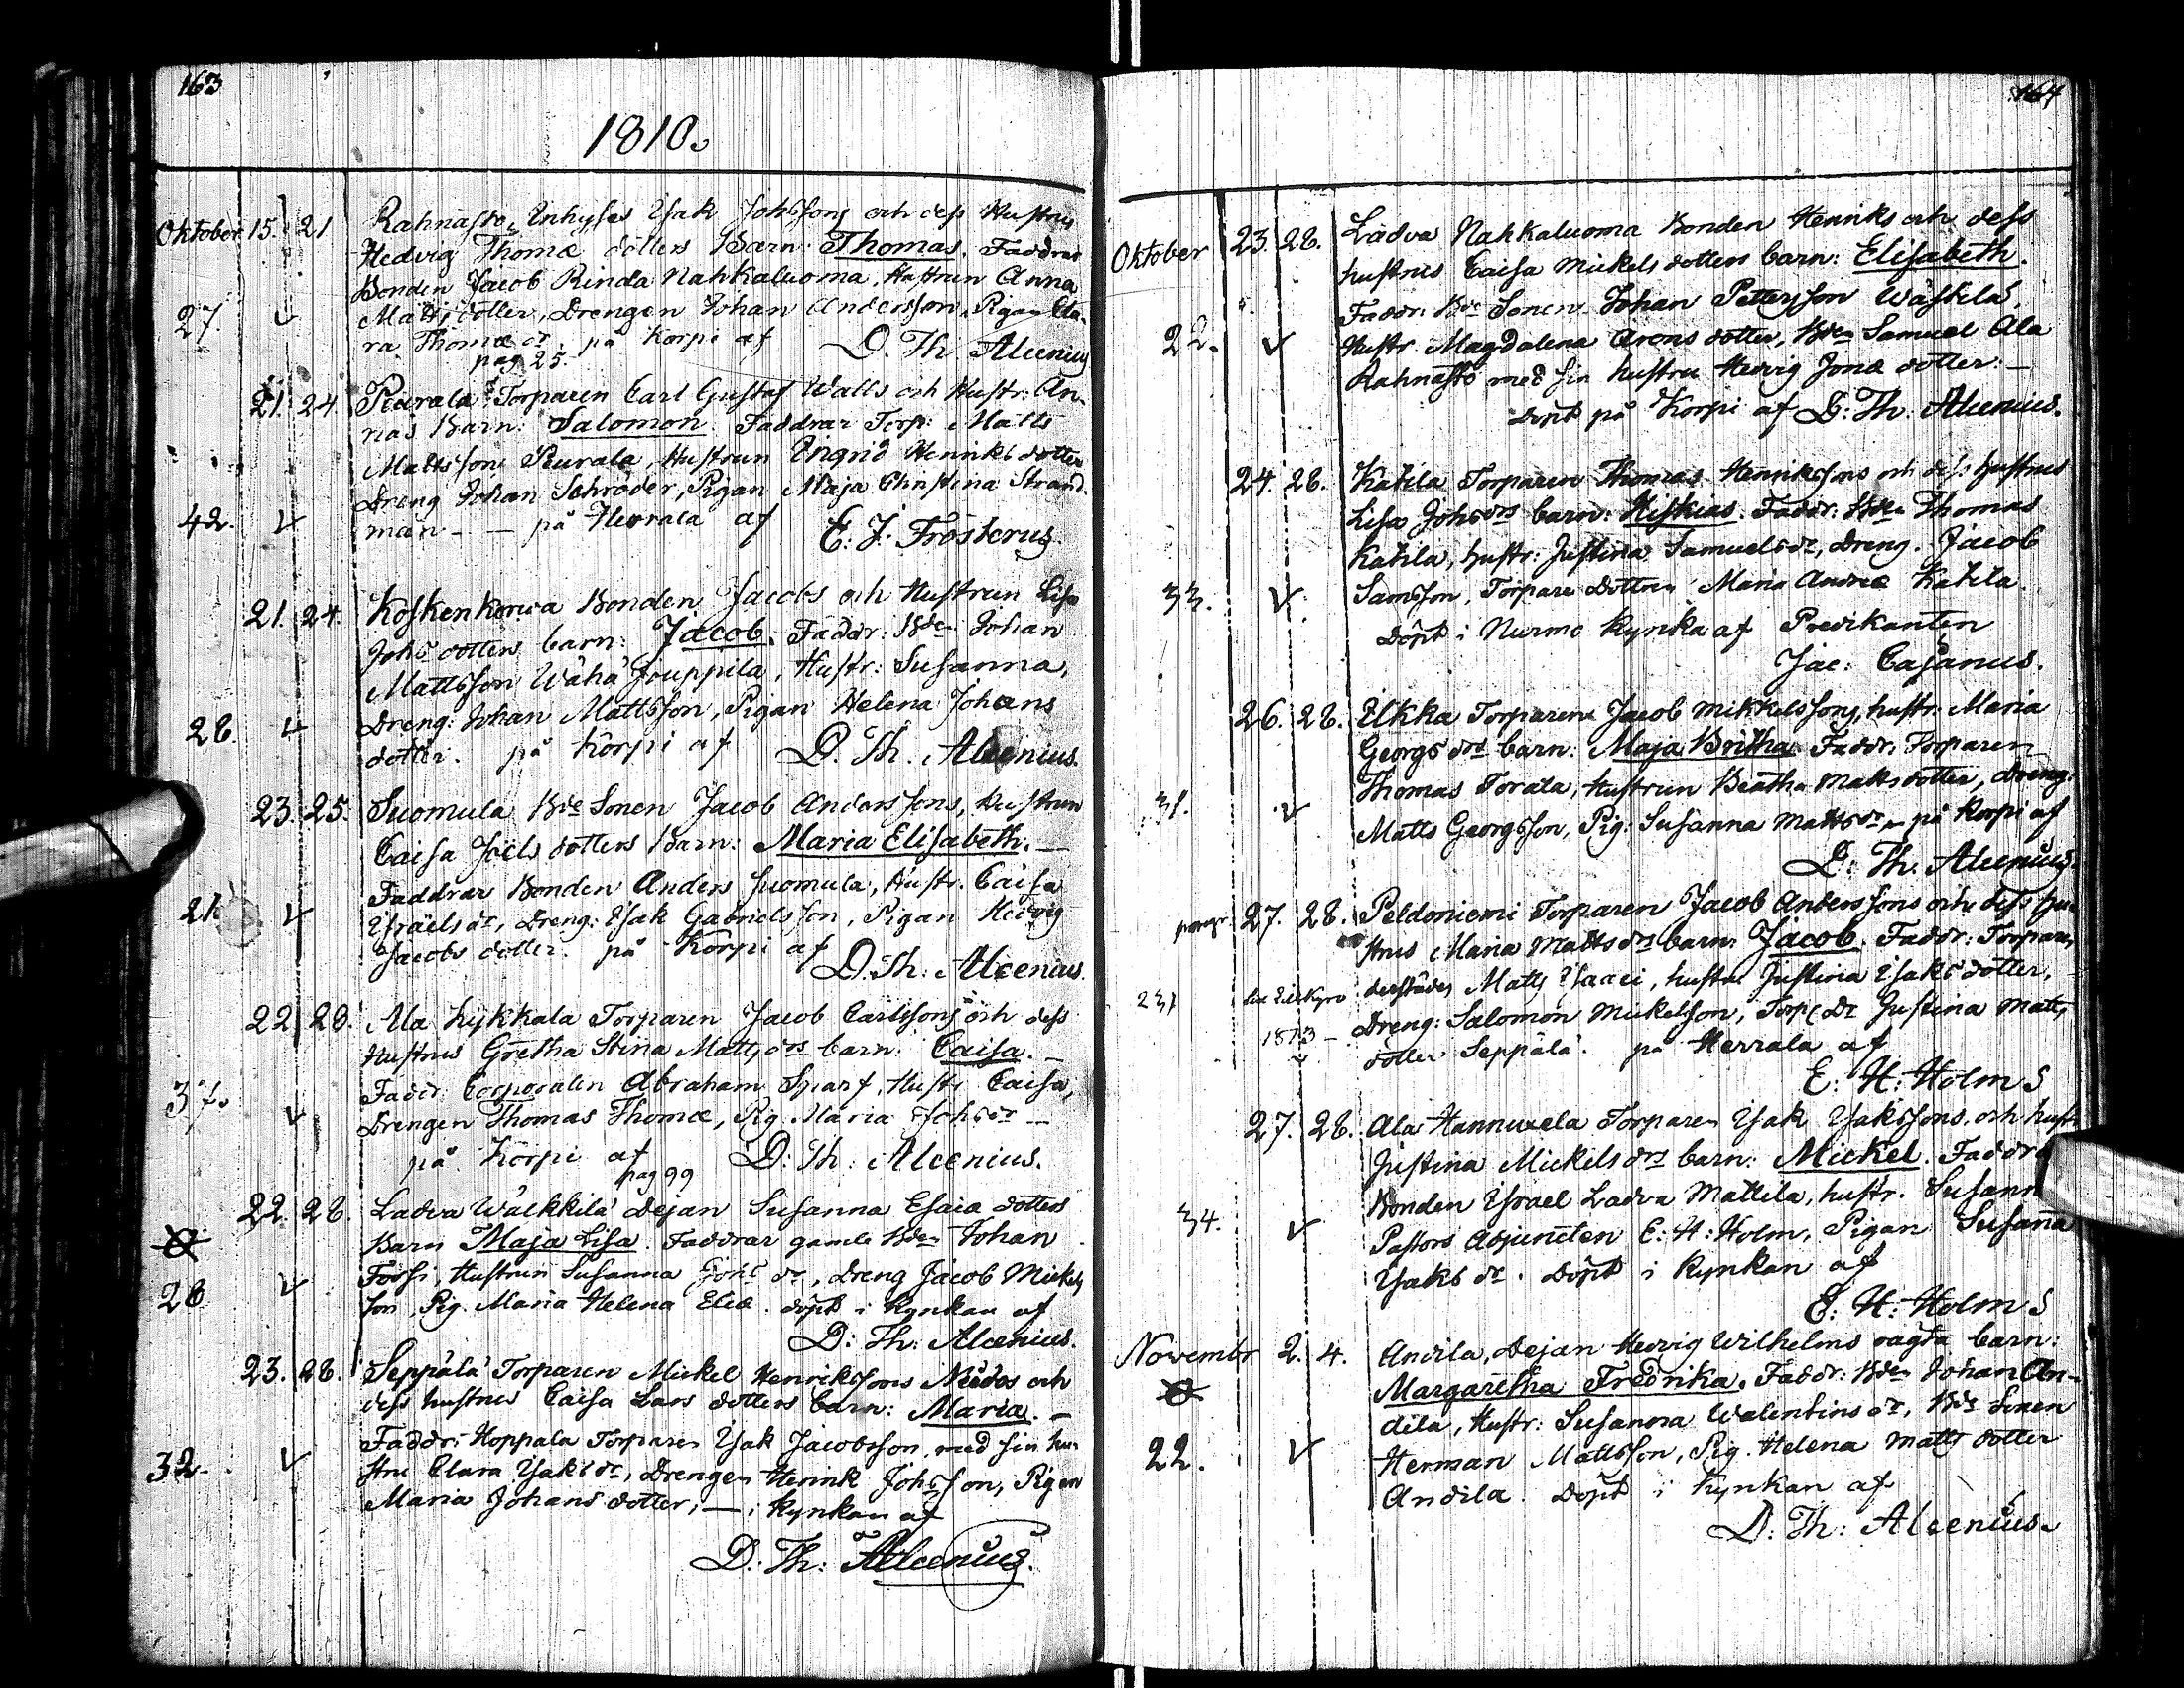 163
1810.
Oktober 15. 21 Rahnasto Inhyses Isak Johssons och dess Hustrus
Hedvig Thomæ dotters Barn: Thomas. Faddrar
Bonden Jacob Rinda Nahkaluoma, Hustrun Anna
27. Matts dotter, Drengen Johan Andersson, Pigan Cla-
ra Thomæ dr, på Korpi af D. Th. Alcenius
pag 25.
21. 24. Peurala Torparen Carl Gustaf Walls och Hustr: An-
nas Barn: Salomon. Faddrar Torp: Matts
Mattsson Peurala, Hustrun Ingrid Henriks dotter
Dreng Johan Schröder, Pigan Maja Christina Strand-
42. man - - på Herrala af E. J. Frosterus.
21. 24. Koskenkorwa Bonden Jacobs och Hustrun Lisa
Johs dotters barn: Jacob. Faddr: Bden Johan
Mattsson Wähä Jouppila, Hustr: Susanna,
28. Dreng: Johan Mattsson, Pigan Helena Johans
dotter. på Korpi af D. Th. Alcenius.
23. 25. Suomula Bde Sonen Jacob Anderssons, Hustrun
Caisa Joels dotters Barn: Maria Elisabeth. -
Faddrar Bonden Anders Suomula, Hustr. Caisa
21 Israels dr, Dreng: Isak Gabrielsson, Pigan Hedvig
Jacobs dotter. på Korpi af
D. Th: Alcenius.
22. 28. Ala hykkala Torparen Jacob Carlssons och dess
Hustrus Gretha Stina Matts drs barn: Caisa. -
37. Faddr: Corporalen Abraham Sparf, Hustr Caisa,
Drengen Thomas Thomæ, Pig. Maria Johs dr -
på Korpi af D: Th: Alcenius.
pag 99
22. 28. Ladva Wälkkilä Dejan Susanna Esaiæ dotters
Barn Maja Lisa. Faddrar gamle Bden Johan
Forssi, Hustrun Susanna Johs dr, Dreng Jacob Mickels
28 son, Pig. Maria Helena Eliæ. döpt i kyrkan af
D: Th: Alcenius.
23. 28. Seppälä Torparen Mickel Henrikssons och
dess hustrus Caisa Lars dotters barn: Maria. -
Faddr: Hoppala Torparen Isak Jacobsson, med sin hu-
32. stru Clara Isaks dr, Drengen Henrik Johsson, Pigan
Maria Johans dotter, - i kyrkan af
D: Th: Alcenius.
164
Oktober 23. 28. Ladva Nahkaluoma Bonden Henriks och dess
hustrus Caisa Mickels dotters barn: Elisabeth.
Faddr: Bde Sonen Johan Pettersson Wäskilä,
22. Hustr. Magdalena Arons dotter, Bden Samuel Ala
Rahnasto med sin hustru Hedvig Jonæ dotter: -
Döpt på Korpi af D: Th: Alcenius.
24. 28. Katila Torparen Thomas Henrikssons och dess hustrus
Lisa Johs drs barn: Hiskias. Faddr: Bden Thomas
Katila, hustr: Justina Samuels dr, Dreng. Jacob
33. Samsson, Torpare Dottren Maria Andræ Katila.
Döpt i Nurmo kyrka af Predikanten
Jac: Cajanus.
26. 28. Ilkka Torparen Jacob Mikkelssons, hustr: Maria
Georgs drs barn: Maja Britha. Faddr: Torparen
Thomas Torala, Hustrun Beatha Matts dotter, Dreng:
31. Matts Georgsson, Pig: Susanna Matts dr - på Korpi af
D: Th: Alcenius.
27. 28. Peldoniemi Torparen Jacob Anderssons och dess hu-
strus Maria Matts drs barn: Jacob. Faddr: Torparen
231 derstädes Matts Isaaci, hustru Justina Isaks dotter,
1873 - Dreng: Salomon Mickelson, Torp. Dr Justina Matts
dotter Seppälä. på Herrala af
E: H: Holm
27. 28. Ala Hannuxela Torparen Isak Isakssons och hustr:
Justina Mickels drs barn: Mickel. Faddr
Bonden Israel Ladva Mattila, hustr. Susanna
34. Pastors Adjuncten E: H: Holm, Pigan Susanna
Isaks dr. Döpt i kyrkan af
E: H: Holm
Novembr 2. 4. Andila, Dejan Hedvig Wilhelms oägta barn:
Margaretha Fredrika. Faddr: Bden Johan An-
dila, Hustr: Susanna Walentins dr, Bde Sonen
22. Herman Mattsson, Pig. Helena Matts dotter
Andila. Döpt i kyrkan af
D: Th: Alcenius.